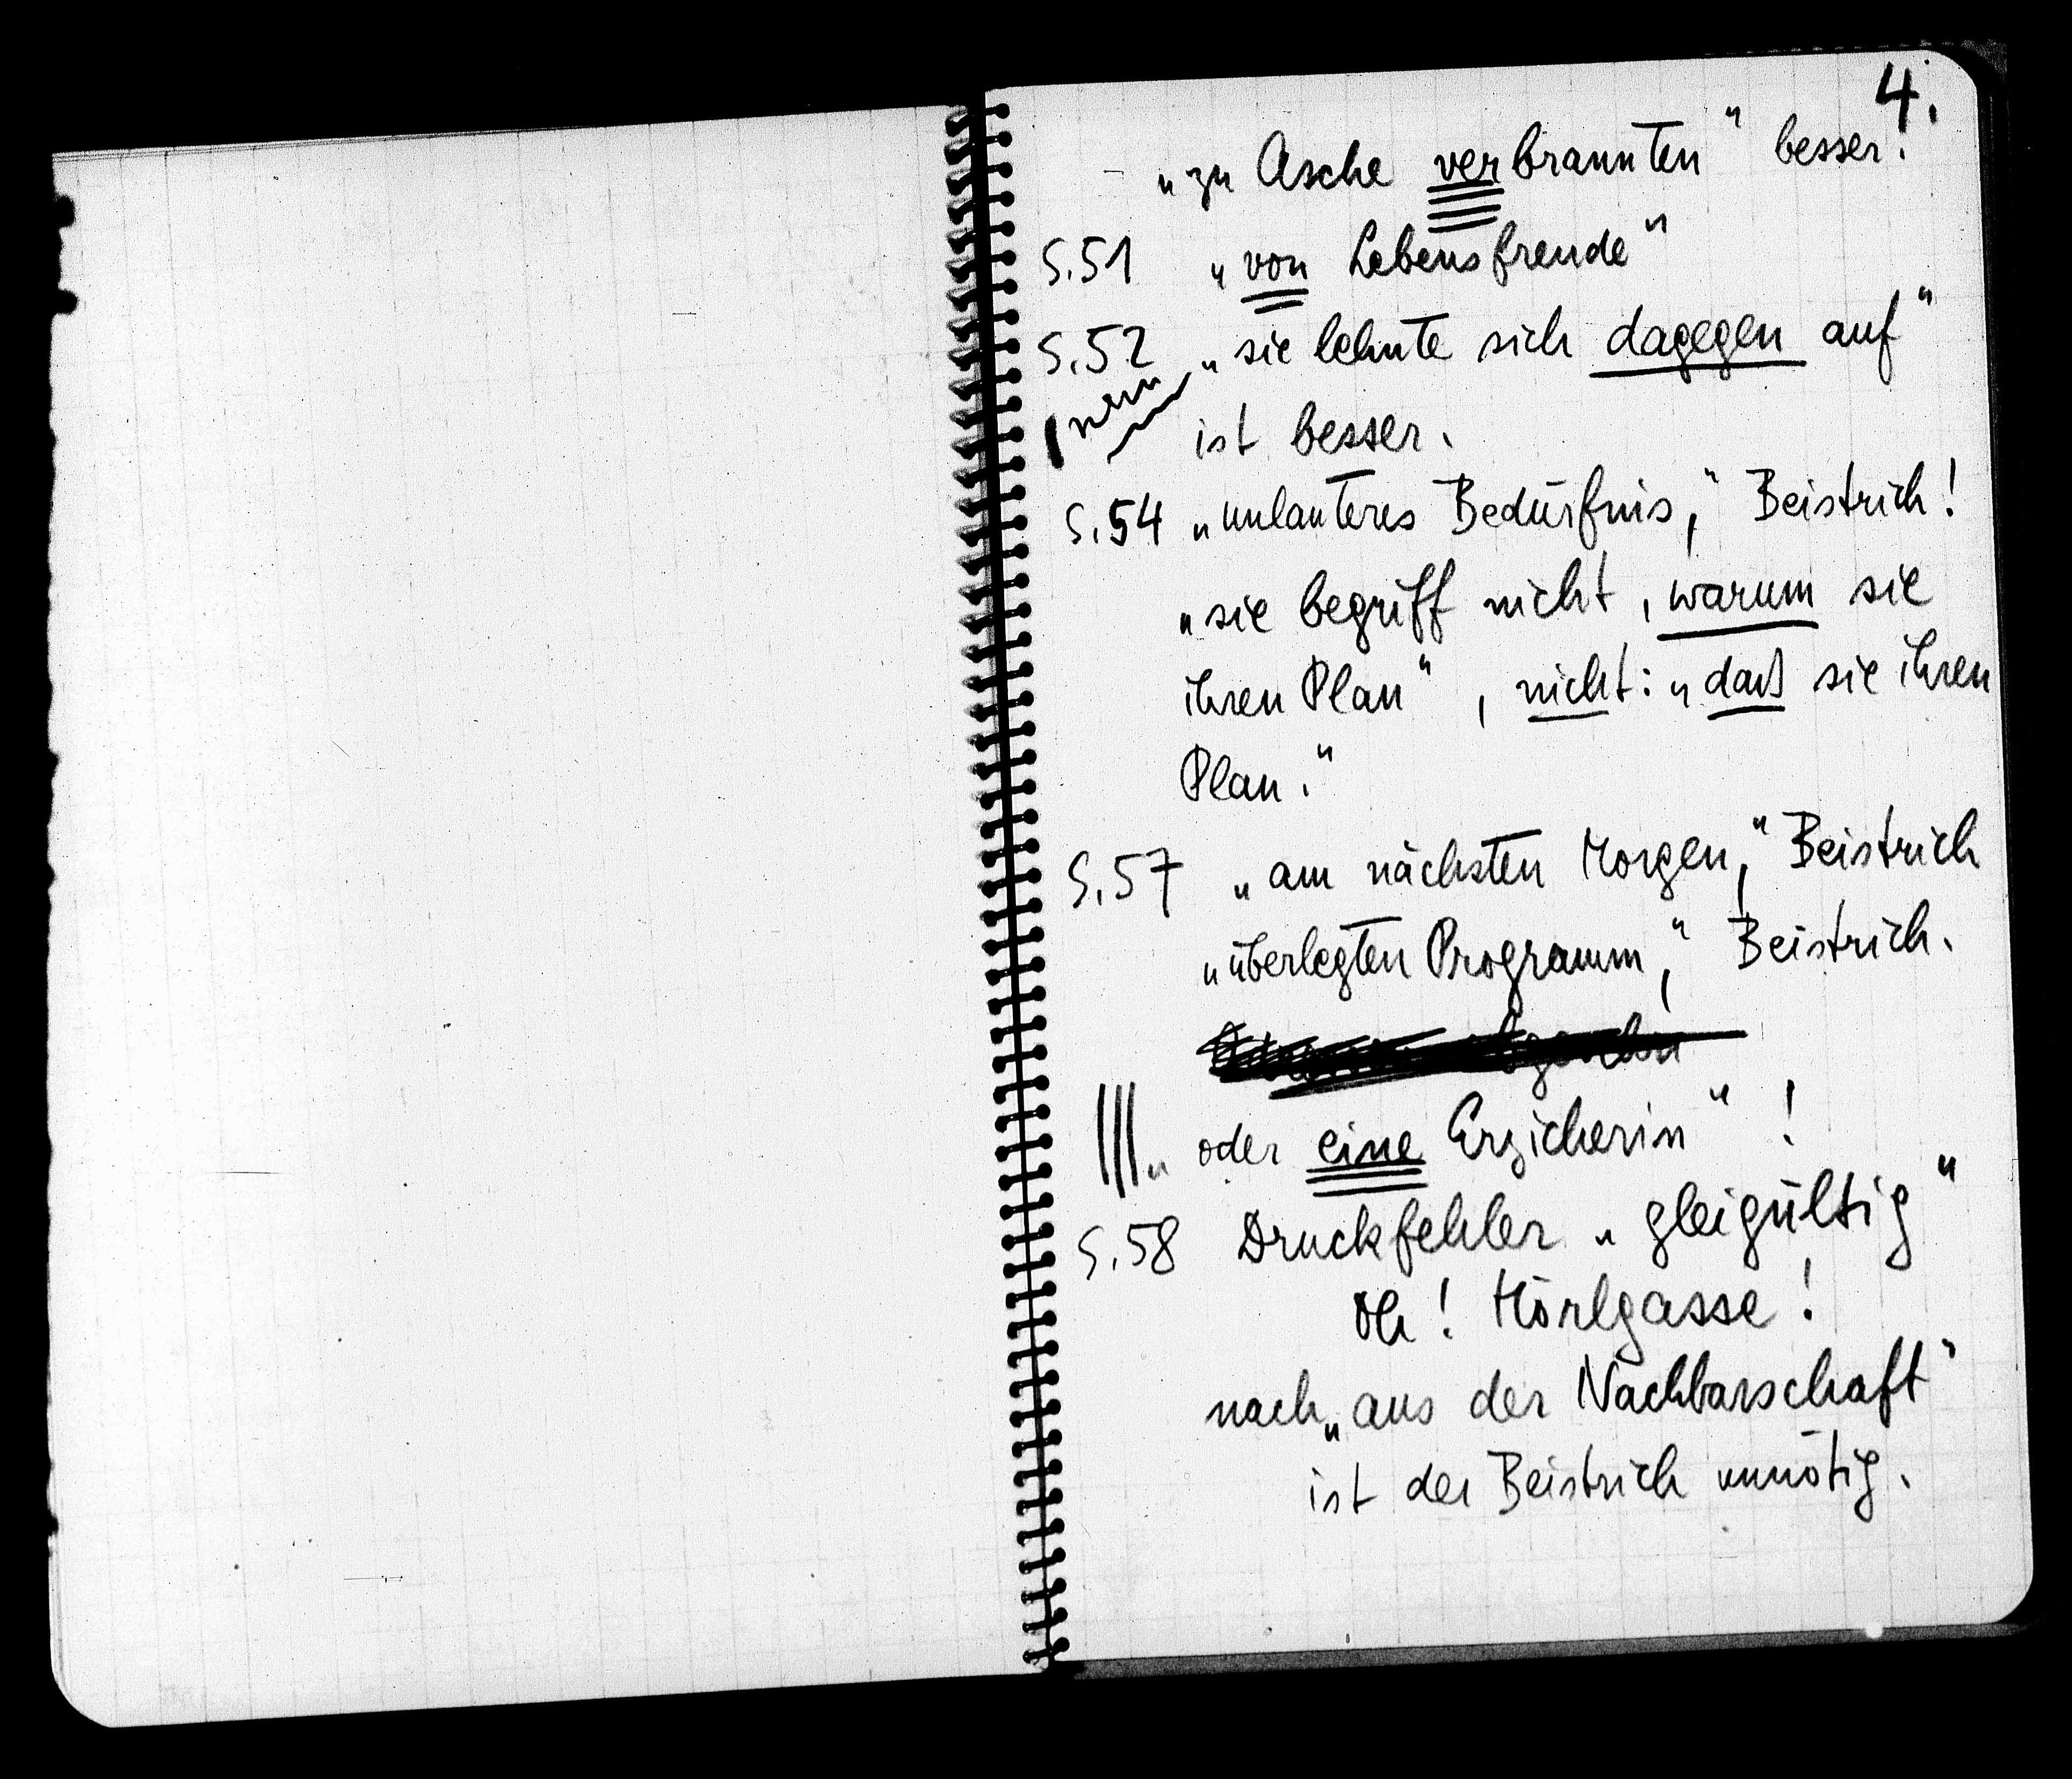 4.
„zu Asche verbrannten" besser!
S.51 „von Lebensfreude"
S.52 „sie lehnte sich dagegen auf"
ist besser.
S.54 „unlauteres Bedürfnis," Beistrich!
„sie begriff nicht, warum sie
ihren Plan", nicht: „daß sie ihren
Plan."
S.57 „am nächsten Morgen," Beistrich
„überlegten Programm," Beistrich.
„oder eine Erzieherin"!
S.58 Druckfehler „gleigültig"
Oh! Hörlgasse!
nach „aus der Nachbarschaft"
ist der Beistrich unnötig.